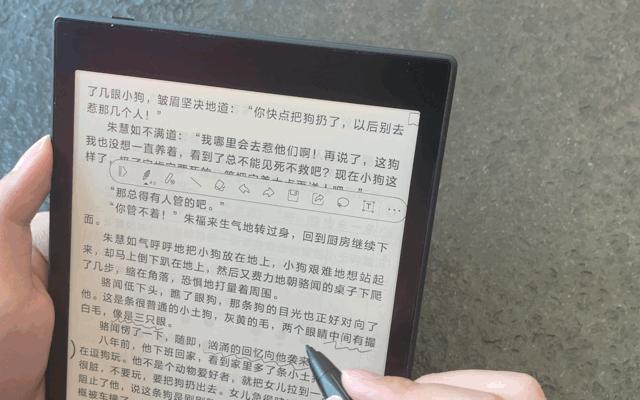 了几眼小狗，皱眉坚决地道：“你快点把狗扔了，以后别去
惹那几个人！”
朱慧如不满道：“我哪里会去惹他们啊！再说了，这狗
我也没想一直养着，看到了总不能见死不救吧？现在小狗这
样了，
“那总得有人管的吧。”
“你管不着！”朱福来生气地转过身，回到厨房继续下
面。
朱慧如气呼呼地把小狗放在地上，小狗艰难地想站起
来，却马上倒下趴在地上，然后又费力地朝骆闻的桌子下爬
了几步，缩在角落，恐惧地打量着周围。
骆闻低下头，瞧了眼狗，那条狗的目光也正好对向了
他。这是条很普通的小土狗，灰黄的毛，两个眼睛中间有撮
白毛，像是三只眼。
骆闻愣了一下，随即，汹涌的回忆向他袭来
八年前，他下班回家，看到家里多了条小土
在逗狗玩。他不是个动物爱好者，就把女儿拉到一
很脏，不要玩，要把狗扔出去。女儿急得
阻止了他，说这条狗是刚刚
概被车撞了